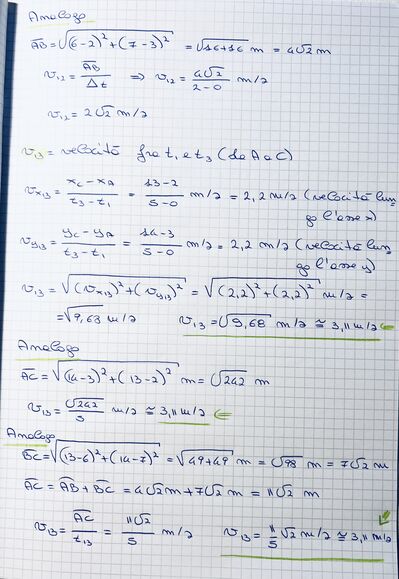 Analogo
AB = √(6-2)²+(7-3)² = √16+16 m = 4√2 m
v₁₂ = AB/Δt ⇒ v₁₂ = 4√2/2-0 m/s
v₁₂ = 2√2 m/s
v₁₃ = velocità fra t₁ e t₃ (da A a C)
vx₁₃ = xC-xA/t₃-t₁ = 13-2/5-0 m/s = 2,2 m/s (velocità lun
go l'asse x)
vy₁₃ = yC-yA/t₃-t₁ = 14-3/5-0 m/s = 2,2 m/s (velocità lun
go l'asse y)
v₁₃ = √(vx₁₃)²+(vy₁₃)² = √(2,2)²+(2,2)² m/s =
= √9,68 m/s v₁₃ = √9,68 m/s ≅ 3,11 m/s ⇐
Analogo
AC = √(14-3)²+(13-2)² m = √242 m
v₁₃ = √242/5 m/s ≅ 3,11 m/s ⇐
Analogo
BC = √(13-6)²+(14-7)² = √49+49 m = √98 m = 7√2 m
AC = AB + BC = 4√2 m + 7√2 m = 11√2 m
v₁₃ = AC/t₁₃ = 11√2/5 m/s v₁₃ = 11/5 √2 m/s ≅ 3,11 m/s